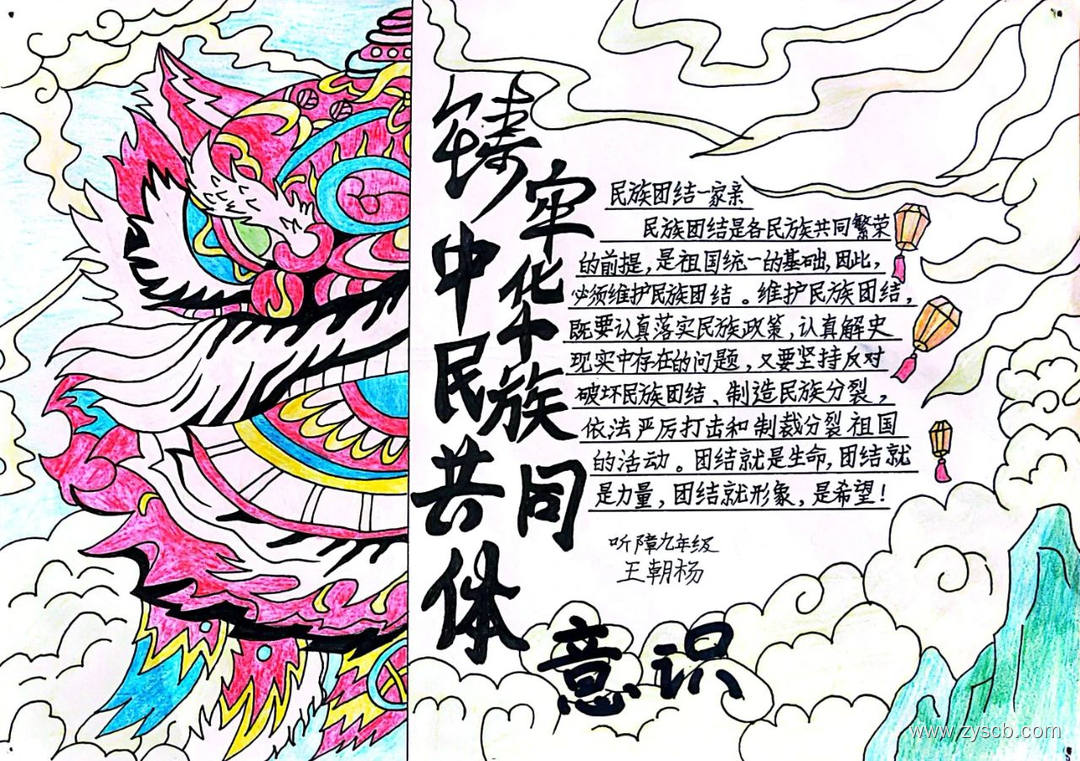 铸牢中华民族共同体
意识
民族团结一家亲
民族团结是各民族共同繁荣
的前提，是祖国统一的基础，因此，
必须维护民族团结。维护民族团结，
既要认真落实民族政策，认真解史
现实中存在的问题，又要坚持反对
破坏民族团结、制造民族分裂，
依法严厉打击和制裁分裂祖国
的活动。团结就是生命，团结就
是力量，团结就形象，是希望！
听障九年级
王朝杨
www.zyscb.com